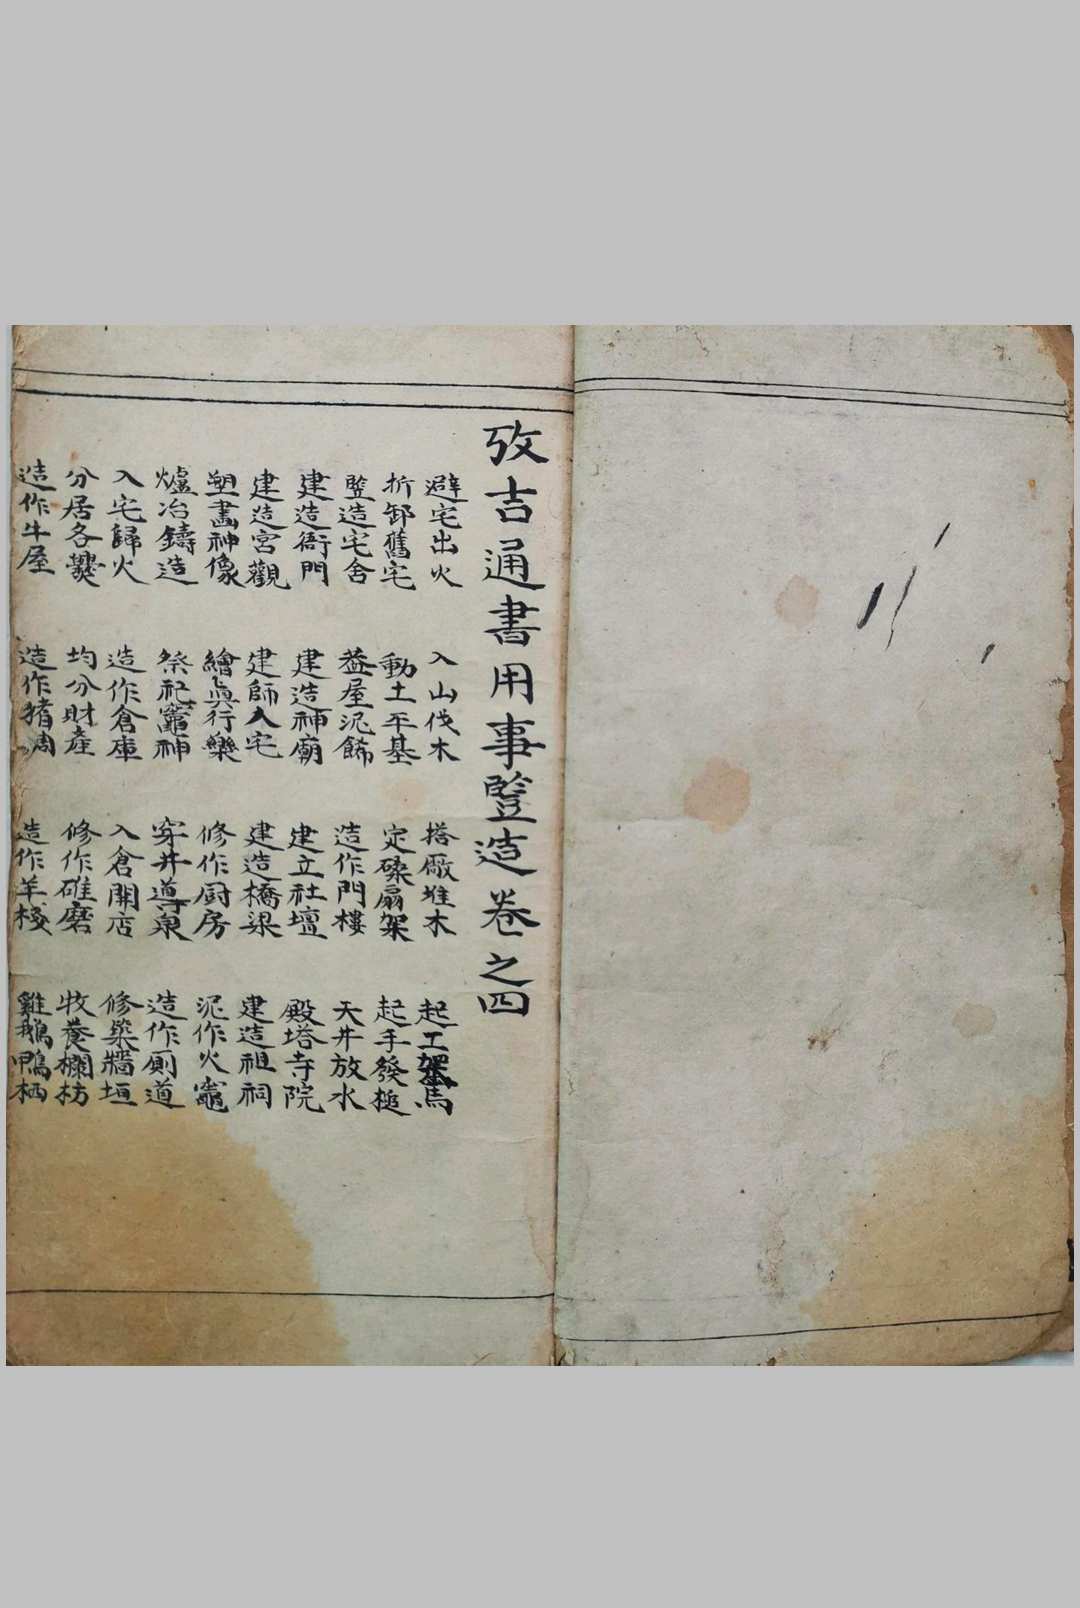 攷吉通書用事豎造卷之四
避宅出火 入山伐木 搭廠堆木 起工架馬
折卸舊宅 動土平基 定磉扇架 起手發槌
豎造宅舍 蓋屋泥飾 造作門樓 天井放水
建造衙門 建造神廟 建立社壇 殿塔寺院
建造宮觀 建師人宅 建造橋梁 建造祖祠
塑畵神像 繪眞行樂 修作厨房 泥作火竈
爐冶鑄造 祭祀竈神 穿井導泉 造作厠道
入宅歸火 造作倉庫 入倉開店 修築牆垣
分居各爨 均分財產 修作碓磨 牧養欄枋
造作牛屋 造作猪凋 造作羊棧 雞鵝鴨栖